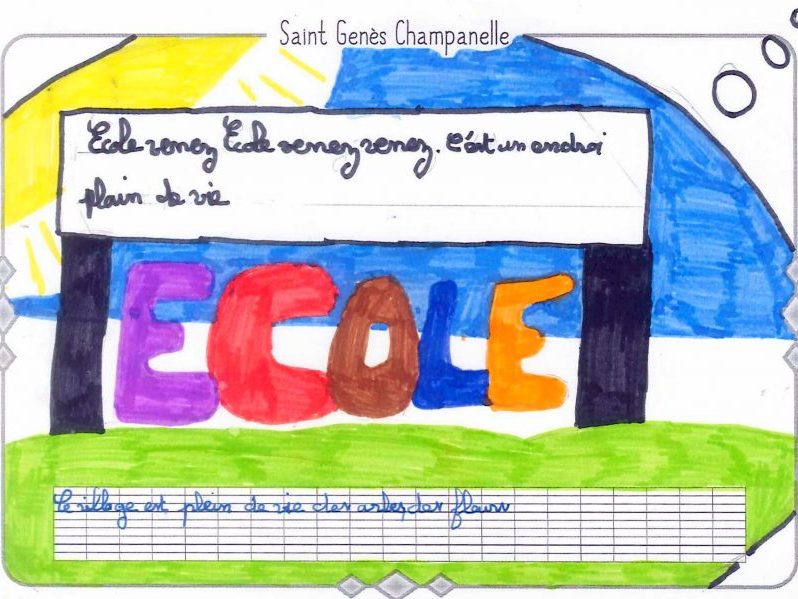 Saint Genès Champanelle
Ecole venez Ecole venez venez. C'est un endroi
plain de vie
ECOLE
Le village est plein de vie des arbes des fleurs